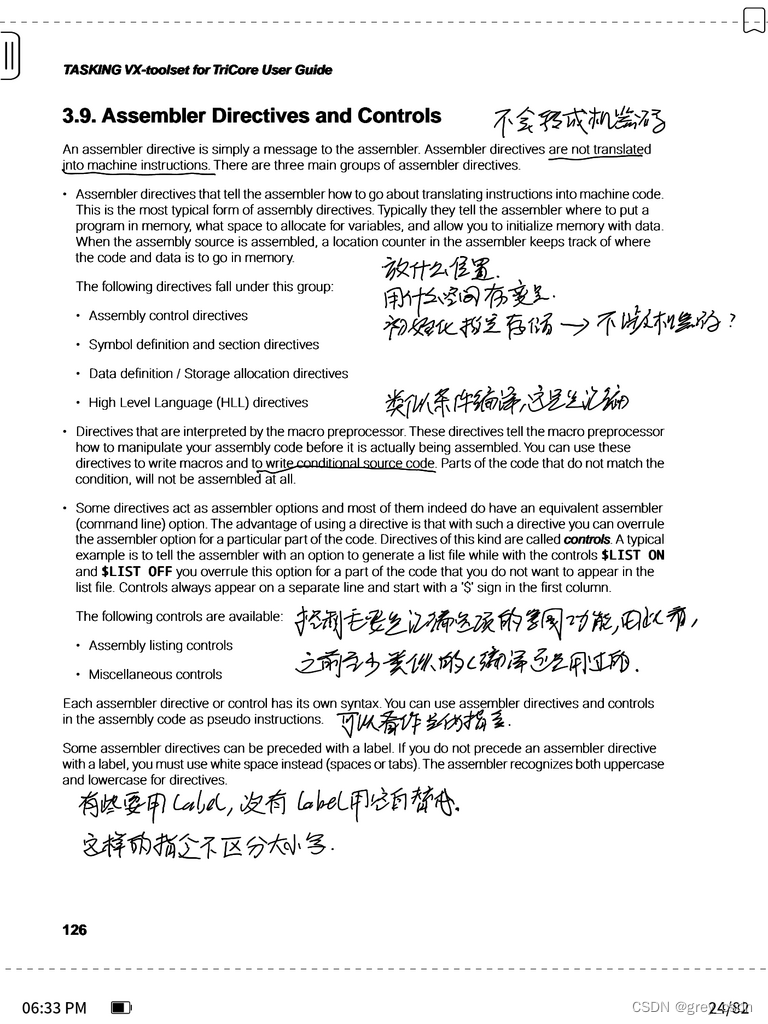 TASKING VX-toolset for TriCore User Guide
3.9. Assembler Directives and Controls
不会转成机器码
An assembler directive is simply a message to the assembler. Assembler directives are not translated
into machine instructions. There are three main groups of assembler directives.
• Assembler directives that tell the assembler how to go about translating instructions into machine code.
This is the most typical form of assembly directives. Typically they tell the assembler where to put a
program in memory, what space to allocate for variables, and allow you to initialize memory with data.
When the assembly source is assembled, a location counter in the assembler keeps track of where
the code and data is to go in memory.
放什么位置.
The following directives fall under this group:
用什么空间存变量.
• Assembly control directives
初始化指定存储 → 不涉及机器码?
• Symbol definition and section directives
• Data definition / Storage allocation directives
• High Level Language (HLL) directives
类似条件编译,这是汇编
• Directives that are interpreted by the macro preprocessor. These directives tell the macro preprocessor
how to manipulate your assembly code before it is actually being assembled. You can use these
directives to write macros and to write conditional source code. Parts of the code that do not match the
condition, will not be assembled at all.
• Some directives act as assembler options and most of them indeed do have an equivalent assembler
(command line) option. The advantage of using a directive is that with such a directive you can overrule
the assembler option for a particular part of the code. Directives of this kind are called controls. A typical
example is to tell the assembler with an option to generate a list file while with the controls $LIST ON
and $LIST OFF you overrule this option for a part of the code that you do not want to appear in the
list file. Controls always appear on a separate line and start with a '$' sign in the first column.
The following controls are available:
控制主要是汇编选项的等同功能,
• Assembly listing controls
之前至少类似的C编译还是用过的.
• Miscellaneous controls
Each assembler directive or control has its own syntax. You can use assembler directives and controls
in the assembly code as pseudo instructions.
可以看作当伪指令.
Some assembler directives can be preceded with a label. If you do not precede an assembler directive
with a label, you must use white space instead (spaces or tabs). The assembler recognizes both uppercase
and lowercase for directives.
有些要用label,没有label用空白替代.
这样的指令不区分大小写.
126
06:33 PM
CSDN @grey_csdn
24/82